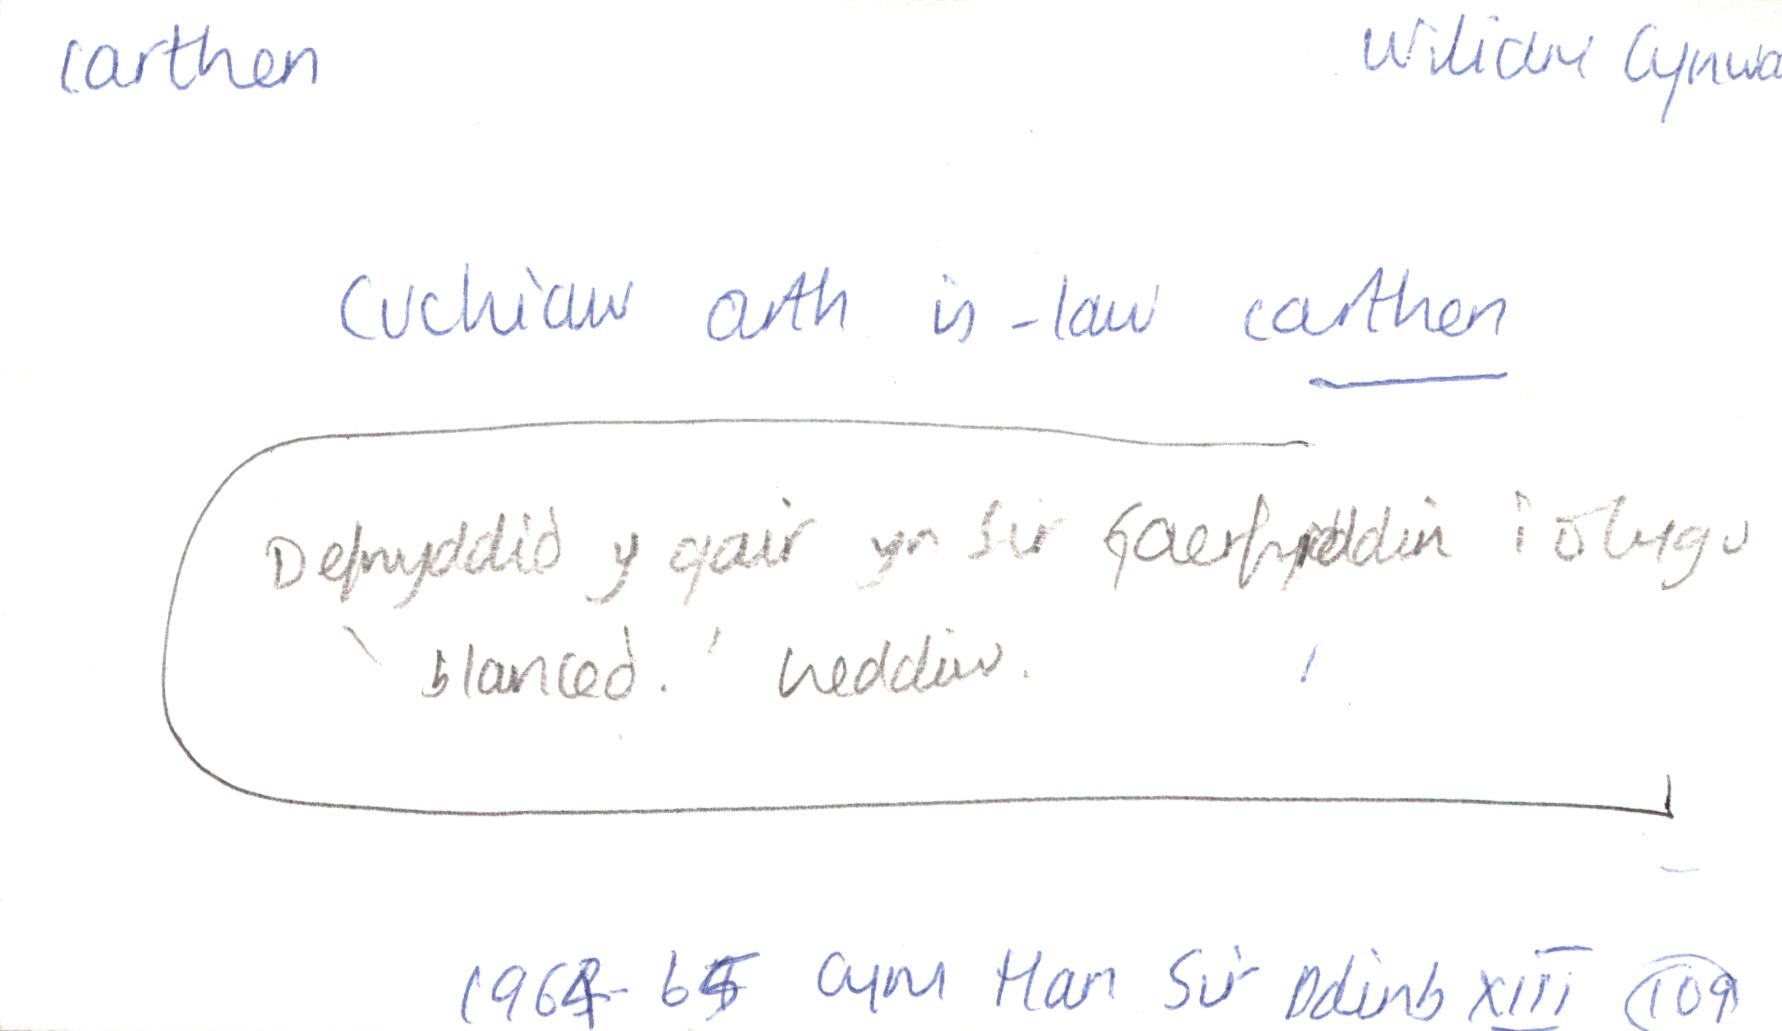 carthen
Wiliam Cynwa
Cuchiaw arth is-law carthen
Defnyddid y gair yn Sir Gaerfyrddin i olygu
'blanced.' heddiw.
1964-65 Cym Han Sir Ddinb XIII 109